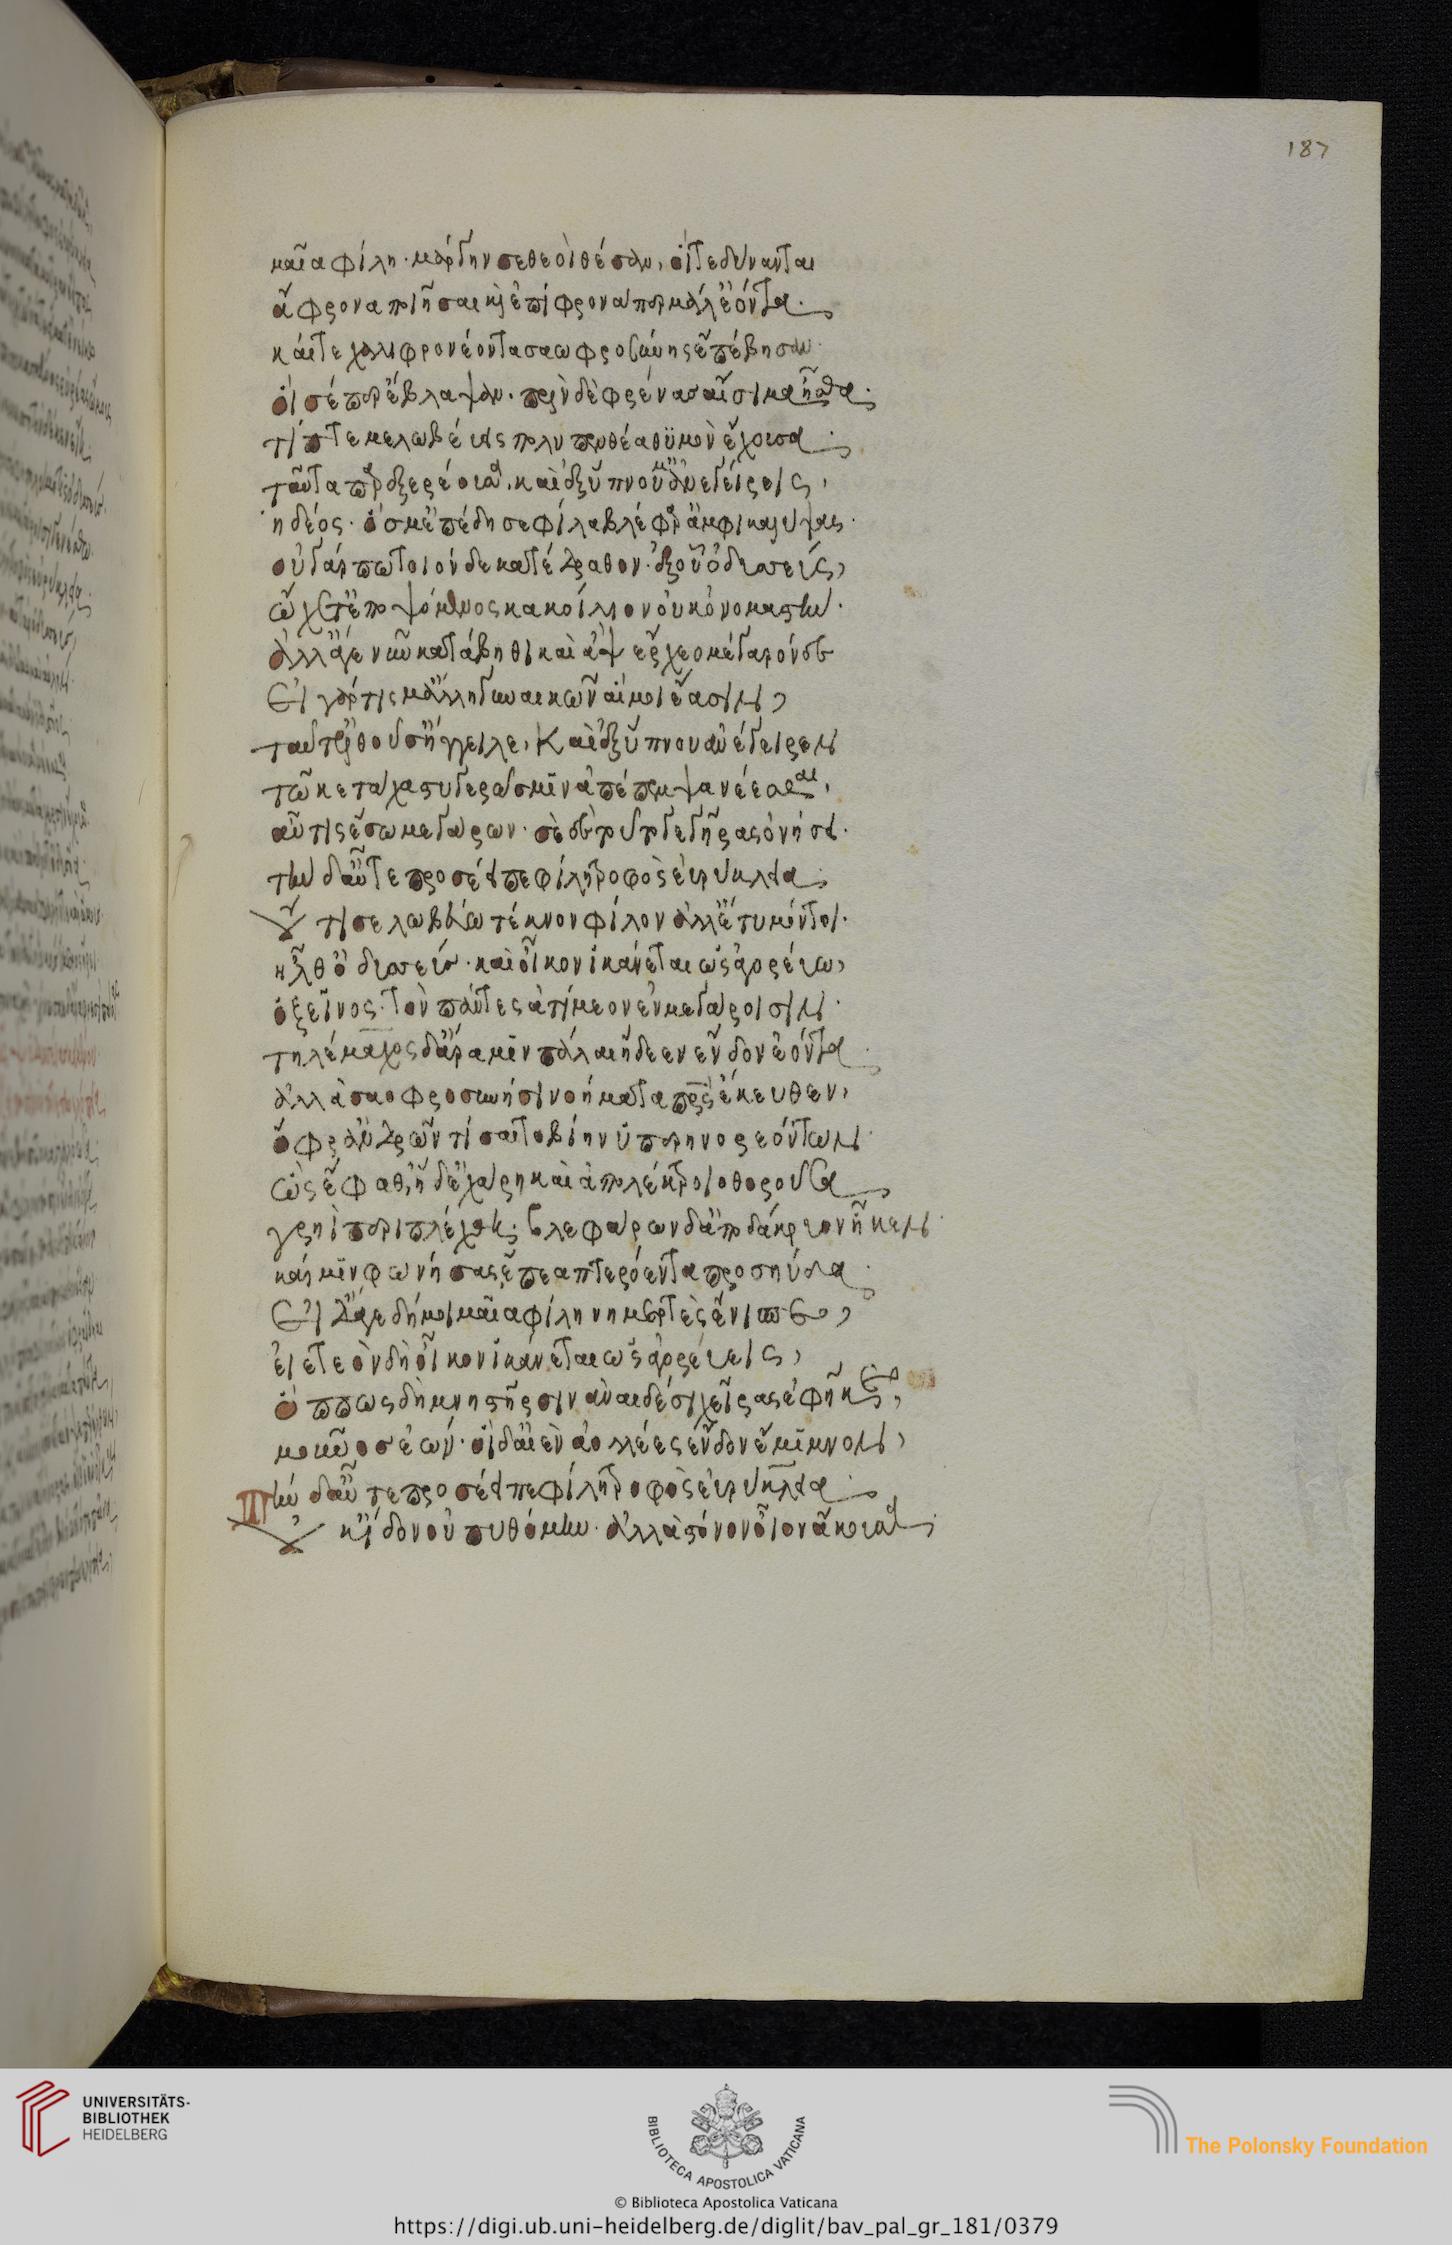 187
μαῖα φίλη· μάργην σε θεοὶ θέσαν, οἵτε δύνανται
ἄφρονα ποιῆσαι καὶ ἐπίφρονά περ μάλ' ἐόντα·
καί τε χαλιφρονέοντα σαωφροσύνης ἐπέβησαν·
οἵ σέ περ ἔβλαψαν· πρὶν δὲ φρένας αἰσίμη ἦσθα·
τίπτέ με λωβεύεις πολυπενθέα θυμὸν ἔχουσα·
ταῦτα παρὲξ ἐρέουσα· καὶ ἐξ ὕπνου μ' ἀνεγείρεις,
ἡδέος· ὅς μ' ἐπέδησε φίλα βλέφαρ' ἀμφικαλύψας·
οὐ γάρ πω τοιόνδε κατέδραθον· ἐξ οὗ ὀδυσσεὺς,
ᾤχετ' ἐποψόμενος κακοΐλιον οὐκ ὀνομαστήν·
ἀλλ' ἄγε νῦν κατάβηθι καὶ ἂψ ἔρχευ μέγαρόνδε
Εἰ γάρ τίς μ' ἄλλη γε γυναικῶν αἵ μοι ἔασιν,
ταῦτ' ἐλθοῦσ' ἤγγειλε, καὶ ἐξ ὕπνου ἀνέγειρεν
τῶ κε τάχα στυγερῶς μιν ἀπέπεμψα νέεσθαι,
αὖτις ἔσω μεγάρων· σὲ δὲ τοῦτό γε γῆρας ὀνήσει·
τὴν δ' αὖτε προσέειπε φίλη τροφὸς εὐρύκλεια·
οὔ τί σε λωβεύω τέκνον φίλον ἀλλ' ἔτυμόν τοι·
ἦλθ' ὀδυσεύς· καὶ οἶκον ἱκάνεται ὡς ἀγορεύω,
ὁ ξεῖνος· τὸν πάντες ἀτίμεον ἐν μεγάροισιν·
τηλέμαχος δ' ἄρα μιν πάλαι ᾔδεεν ἔνδον ἐόντα·
ἀλλὰ σαοφροσύνῃσι νοήματα πατρὸς ἔκευθεν,
ὄφρ' ἀνδρῶν τίσαιτο βίην ὑπερηνορεόντων·
ὣς ἔφαθ', ἡ δ' ἐχάρη καὶ ἀπὸ λέκτροιο θοροῦσα
γρηῒ περιπλέχθη· βλεφάρων δ' ἀπὸ δάκρυον ἧκεν·
καί μιν φωνήσας ἔπεα πτερόεντα προσηύδα·
Εἰ δ' ἄγε δή μοι μαῖα φίλη νημερτὲς ἔνισπε,
εἰ ἐτεὸν δὴ οἶκον ἱκάνεται ὡς ἀγορεύεις,
ὅππως δὴ μνηστῆρσιν ἀναιδέσι χεῖρας ἐφῆκε,
μοῦνος ἐών· οἱ δ' αἰὲν ἀολλέες ἔνδον ἔμιμνον,
Τὴν δ' αὖτε προσέειπε φίλη τροφὸς εὐρύκλεια·
οὐκ ἴδον οὐ πυθόμην· ἀλλὰ στόνον οἶον ἄκουσα·
UNIVERSITÄTS-
BIBLIOTHEK
HEIDELBERG
BIBLIOTECA APOSTOLICA VATICANA
© Biblioteca Apostolica Vaticana
The Polonsky Foundation
https://digi.ub.uni-heidelberg.de/diglit/bav_pal_gr_181/0379